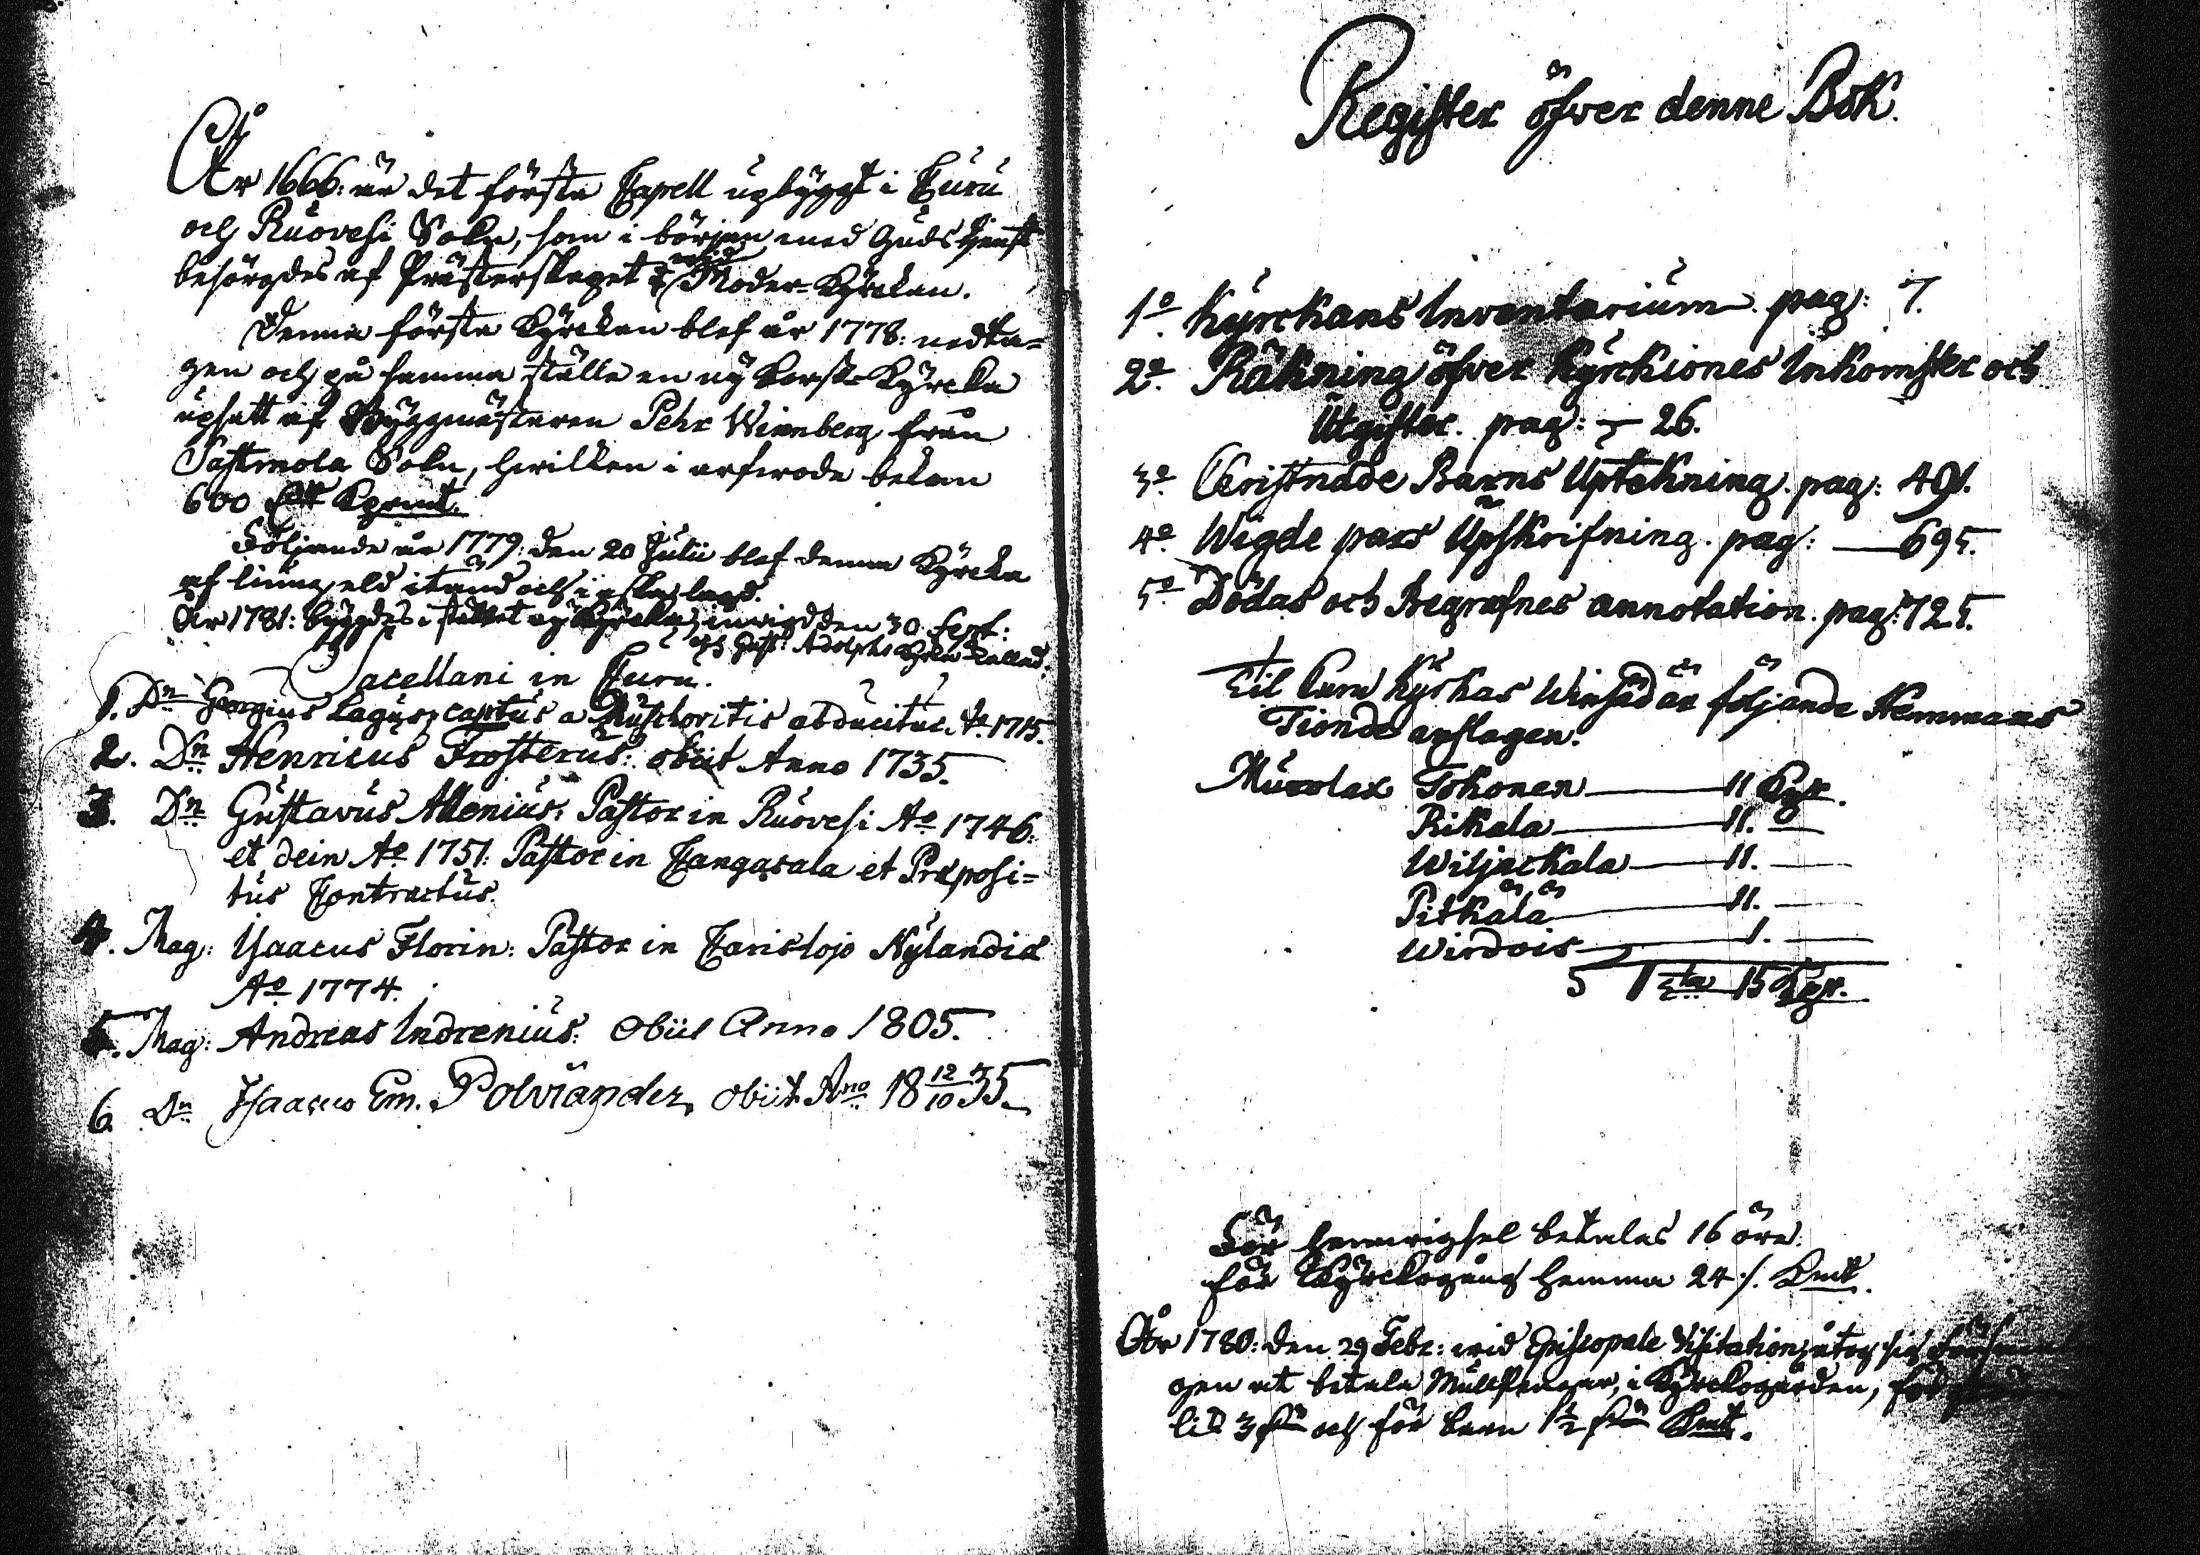 År 1666: är det första Capell upbÿgt i Curu
och Ruovesi Sokn, som i början med Guds tjenst
besörgdes af Prästerskapet wid Moder-Kÿrckan.
Denna första Kÿrckan blef år 1778: nedta=
gen och på samma ställe en nÿ Korss-Kÿrcka
upsatt af Bÿggmästaren Pehr Wirenberg från
Sastmola Sokn, hwilken i arfwode bekom
600 Kopmt.
Följande år 1779: den 20 Julii blef denna Kÿrcka
af liungeld itänd och i aska lagd.
År 1781: bÿgdes i stället nÿ Kÿrcka, inwigd den 30 Sept:
och Gust: Adolphs Kÿrka kallad.
Sacellani in Curu.
1. Dn Georgius Lagus, captus a Muschovitis abducitur Ao 1715.
2. Dn Henricus Frosterus: obiit Anno 1735.
3. Dn Gustavus Allenius: Pastor in Ruovesi Ao 1746:
et dein Ao 1751: Pastor in Cangasala et Præposi=
tus Contractus.
4. Mag: Isaacus Florin: Pastor in Carislojo Nylandiæ
Ao 1774.
5. Mag: Andreas Indrenius: Obiit Anno 1805.
6. Dn Isaacus Em. Polviander, obiit Ano 18 12/10 35.
Register öfver denne Bok.
1o Kÿrckans Inventarium. pag: 7.
2o Räkning öfver Kÿrckiones Inkomster och
Utgifter. pag: 26.
3o Christnade Barns Uptekning. pag: 401.
4o Wigde pars Upskrifning. pag: 695.
5o Dödas och Begrafnes annotation. pag: 725.
Til Curu Kÿrkas Winsäd är följande Hemmans
Tionde anslagen.
Murolax Tokonen 11 Kpr.
Rikala 11.
Wiljackala 11.
Pitkälä 11.
Wirdois 1.
5 1 15 Kpr.
För hemwigsel betalas 16 öre.
för Kÿrckogång hemma 24 /. Kmt.
År 1780: den 29 Febr: wid Episcopale Visitation, åtog sig
gen at betala Mullpengar, i Kÿrckogården, för
lid 3 och för barn 1½ Kmt.